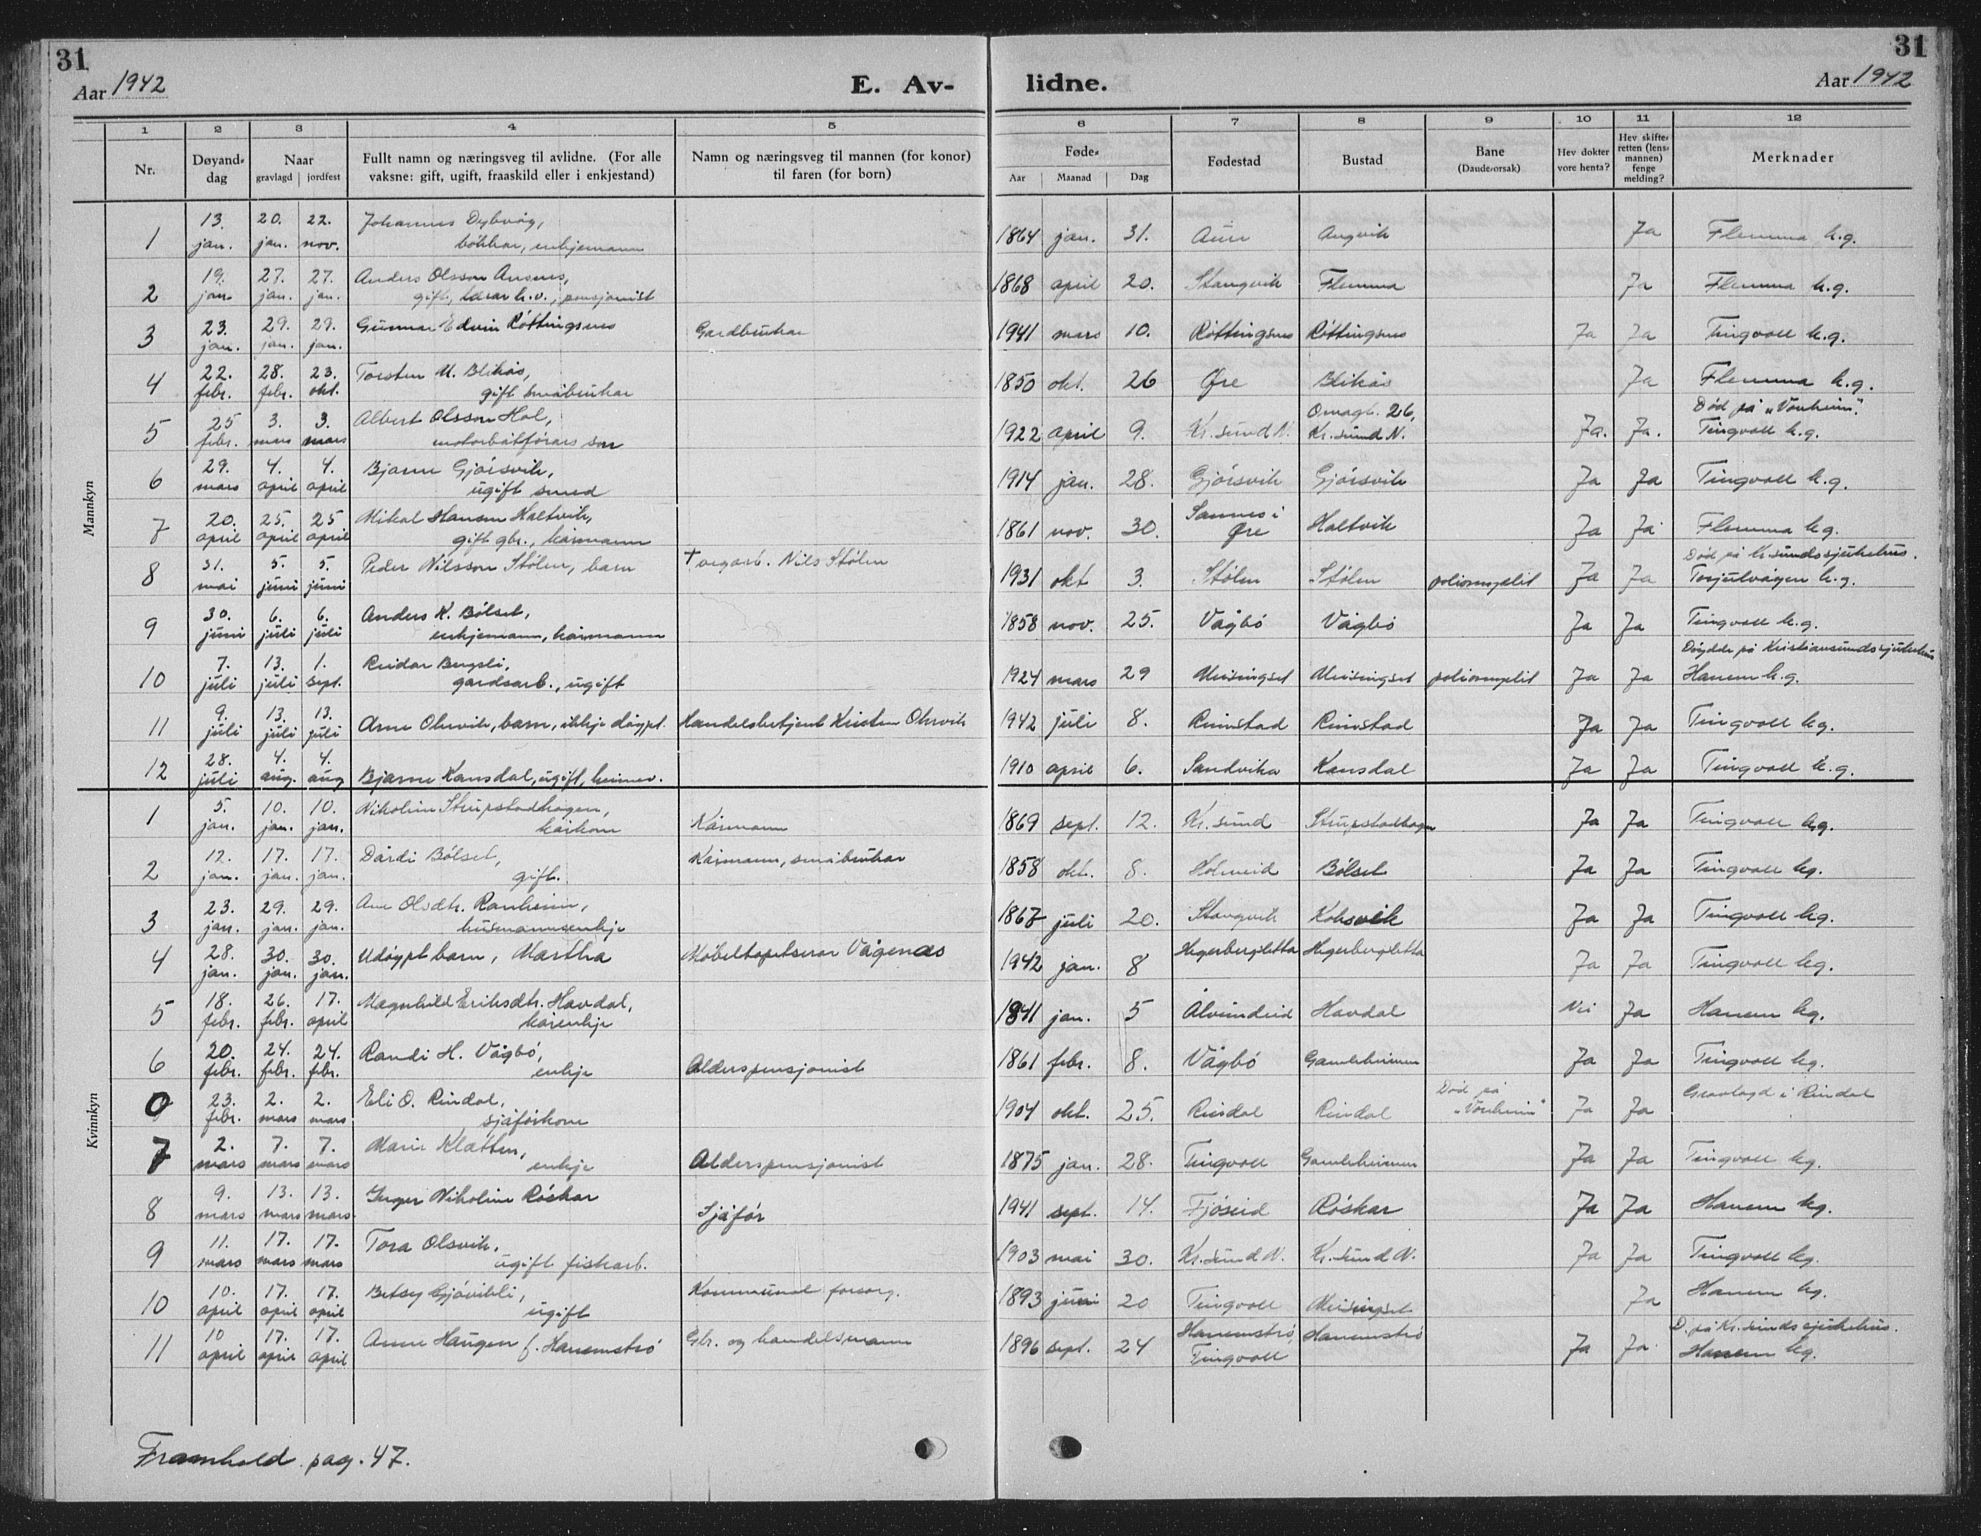 31
Aar 1942
E. Av-
lidne.
31
Aar 1942
1 2 3 4 5 6 7 8 9 10 11 12
Nr.
Døyand-
dag
Naar
gravlagd jordfest
Fullt namn og næringsveg til avlidne. (For alle
vaksne: gift, ugift, fraaskild eller i enkjestand)
Namn og næringsveg til mannen (for konor)
til faren (for born)
Føde-
Aar Maanad Dag
Fødestad
Bustad
Bane
(Daudeorsak)
Hev dokter
vore henta?
Hev skifte-
retten (lens-
mannen)
fenge
melding?
Merknader
Mannkyn
13. 20. 22. Johannes Dybvåg,
1 jan. jan. nov. enkjemann 1864 jan. 31. Angvik Ja Flemma k.g.
19. 27. 27. Anders Olsson
2 jan. jan. jan. gift, lærar, pensjonist 1868 april 20. Stangvik Flemma Ja Flemma k.g.
3 23. jan. 29. jan. 29. jan. Gunnar Edvin Røttingsnes Gardbrukar 1941 mars 10. Røttingsnes Røttingsnes Ja Ja Tingvoll k.g.
22. 28. 23. Torsten M. Blikås,
4 febr. febr. okt. gift småbrukar 1850 okt. 26 Øre Blikås Ja Flemma k.g.
25 3. 3. Albert Olsson Hol, Omagt. 26, Død på "Vonheim".
5 febr. mars mars motorbåtførars son 1922 april 9. Kr.sund N. Kr.sund N. Ja. Ja. Tingvoll k.g.
29. 4. 4. Bjarne Gjørsvik,
6 mars april april ugift smed 1914 jan. 28. Gjørsvik Gjørsvik Ja Ja Tingvoll k.g.
20. 25. 25 Mikal Hansen Holtvik, Sannes i
7 april april april gift gbr., kårmann 1861 nov. 30. Øre Holtvik Ja Ja Flemma k.g.
31. 5. 5. Peder Nilsson Stølen, barn + Nils Stølen Død på Kr.sunds sjukehus.
8 mai juni juni 1931 okt 3. Stølen Stølen poliomyelit Ja Ja Torjulvågen k.g.
30. 6. 6. Anders K. Bølset,
9 juni juli juli enkjemann, kårmann 1858 nov. 25. Vågbø Vågbø Ja Ja Tingvoll k.g.
7. 13. 1. Reidar Bergsli, Døydde på Kristiansunds sjukehus
10 juli juli sept. gardsarb., ugift 1924 mars 29 Meisingset Meisingset poliomyelit Ja Ja Hanem k.g.
9. 13. 13.
11 juli juli juli Arne Olsvik, barn, ikkje døypt. Handelsbetjent Kristen Olsvik 1942 juli 8. Reinstad Reinstad Ja Ja Tingvoll k.g.
28. 4. 4.
12 juli aug. aug Bjarne Kansdal, ugift, heimev. 1910 april 6. Sandvika Kansdal Ja Ja Tingvoll k.g.
Kvinnkyn
5. 10. 10. Nikoline Skrupstadhagen,
1 jan. jan. jan. kårkone Kårmann 1869 sept. 12. Kr.sund Skrupstadhagen Ja Ja Tingvoll kg.
12. 17. 17. Dårdi Bølset,
2 jan. jan. jan. gift. Kårmann, småbrukar 1858 okt. 8. Holmeid Bølset Ja Ja Tingvoll kg.
23. 29. 29. Ane Olsdtr. Ranheim,
3 jan. jan. jan. husmannsenkje 1867 juli 20. Stangvik Koksvik Ja Ja Tingvoll kg.
28. 30. 30.
4 jan. jan. jan. Udøypt barn, Martha Møbeltapetserar Vågenæs 1942 jan. 8 Hegerbergsletta Hegerbergsletta Ja Ja Tingvoll kg.
18. 26. 17. Magnhild Eriksdtr. Havdal,
5 febr. febr. april kårenkje 1841 jan. 5 Ålvundeid Havdal Nei Ja Hanem kg.
20. 24. 24. Randi H. Vågbø,
6 febr. febr. febr. enkje Alderspensjonist 1861 febr. 8. Vågbø Gamleheimen Ja Ja Tingvoll kg.
23. 2. 2. Eli O. Rindal, Død på
0 febr. mars mars sjåførkone 1904 okt. 25. Rindal Rindal "Vonheim" Ja Ja Gravlagd i Rindal
2. 7. 7. Marie Kløtten,
7 mars mars mars enkje Alderspensjonist 1875 jan. 28. Tingvoll Gamleheimen Ja Ja Tingvoll kg.
9. 13. 13. Inger Nikoline Røskar
8 mars mars mars. Sjåfør 1941 sept. 14. Fjøseid Røskar Ja Ja Hanem kg.
11. 17. 17. Tora Olsvik,
9 mars mars mars ugift fiskarb. 1903 mai 30. Kr.sund N. Kr.sund N. Ja Ja Tingvoll kg.
10. 17. 17. Betsy Gjøvikli,
10 april april april ugift Kommunal forsorg. 1893 juni 20 Tingvoll Meisingset Ja Hanem kg.
10 17. 17. Hanemstrø D. på Kr.sunds sjukehus.
11 april april april Anne Haugen f. Hanemstrø Gbr. og handelsmann 1896 sept. 24 Tingvoll Hanemstrø Ja Ja. Hanem kg.
Framhald pag. 47.